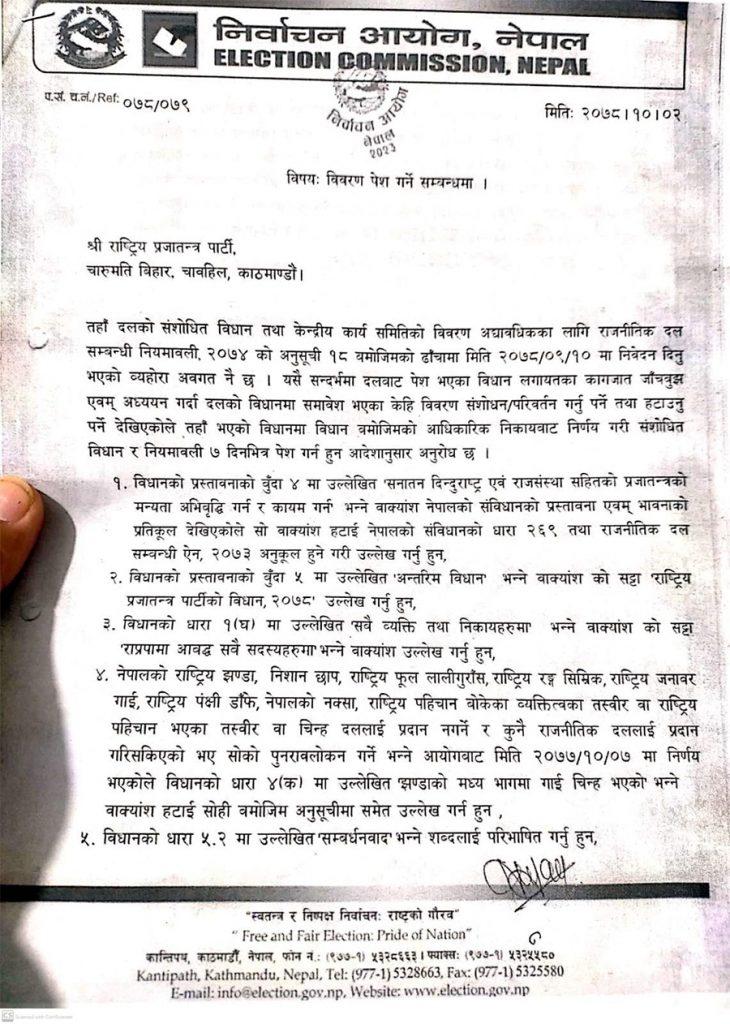 निर्वाचन आयोग, नेपाल
ELECTION COMMISSION, NEPAL
प.सं. च.नं./Ref: ०७८/०७९
निर्वाचन आयोग
नेपाल
2023
मितिः २०७८।१०।०२
विषयः विवरण पेश गर्ने सम्बन्धमा ।
श्री राष्ट्रिय प्रजातन्त्र पार्टी,
चारुमति बिहार, चावहिल, काठमाण्डौं।
तहाँ दलको संशोधित विधान तथा केन्द्रीय कार्य समितिको विवरण अद्यावधिकका लागि राजनीतिक दल
सम्बन्धी नियमावली, २०७४ को अनुसूची १८ बमोजिमको ढाँचामा मिति २०७८/०९/१० मा निवेदन दिनु
भएको व्यहोरा अवगत नै छ । यसै सन्दर्भमा दलबाट पेश भएका विधान लगायतका कागजात जाँचबुझ
एवम् अध्ययन गर्दा दलको विधानमा समावेश भएका केहि विवरण संशोधन/परिवर्तन गर्नु पर्ने तथा हटाउनु
पर्ने देखिएकोले तहाँ भएको विधानमा विधान बमोजिमको आधिकारिक निकायबाट निर्णय गरी संशोधित
विधान र नियमावली ७ दिनभित्र पेश गर्न हुन आदेशानुसार अनुरोध छ ।
१. विधानको प्रस्तावनाको बुँदा ४ मा उल्लेखित 'सनातन दिन्दुराष्ट्र एवं राजसंस्था सहितको प्रजातन्त्रको
मन्यता अभिवृद्धि गर्न र कायम गर्न' भन्ने वाक्यांश नेपालको संविधानको प्रस्तावना एवम् भावनाको
प्रतिकूल देखिएकोले सो वाक्यांश हटाई नेपालको संविधानको धारा २६९ तथा राजनीतिक दल
सम्बन्धी ऐन, २०७३ अनुकूल हुने गरी उल्लेख गर्नु हुन,
२. विधानको प्रस्तावनाको बुँदा ५ मा उल्लेखित 'अन्तरिम विधान' भन्ने वाक्यांश को सट्टा 'राष्ट्रिय
प्रजातन्त्र पार्टीको विधान, २०७८' उल्लेख गर्नु हुन,
३. विधानको धारा १(घ) मा उल्लेखित 'सबै व्यक्ति तथा निकायहरुमा' भन्ने वाक्यांश को सट्टा
'राप्रपामा आवद्ध सबै सदस्यहरुमा' भन्ने वाक्यांश उल्लेख गर्नु हुन,
४. नेपालको राष्ट्रिय झण्डा, निशान छाप, राष्ट्रिय फूल लालीगुराँस, राष्ट्रिय रङ्ग सिम्रिक, राष्ट्रिय जनावर
गाई, राष्ट्रिय पंक्षी डाँफे, नेपालको नक्सा, राष्ट्रिय पहिचान बोकेका व्यक्तित्वका तस्वीर वा राष्ट्रिय
पहिचान भएका तस्वीर वा चिन्ह दललाई प्रदान नगर्ने र कुनै राजनीतिक दललाई प्रदान
गरिसकिएको भए सोको पुनरावलोकन गर्ने भन्ने आयोगबाट मिति २०७७/१०/०७ मा निर्णय
भएकोले विधानको धारा ४(क) मा उल्लेखित 'झण्डाको मध्य भागमा गाई चिन्ह भएको' भन्ने
वाक्यांश हटाई सोही बमोजिम अनुसूचीमा समेत उल्लेख गर्न हुन ,
५. विधानको धारा ५.२ मा उल्लेखित 'सम्बर्धनवाद' भन्ने शब्दलाई परिभाषित गर्नु हुन,
"स्वतन्त्र र निष्पक्ष निर्वाचनः राष्ट्रको गौरव"
"Free and Fair Election: Pride of Nation"
कान्तिपथ, काठमाडौं, नेपाल, फोन नं.: (९७७-१) ५३२८६६३। फ्याक्सः (९७७-१) ५३२५५८०
Kantipath, Kathmandu, Nepal, Tel: (977-1) 5328663, Fax: (977-1) 5325580
E-mail: info@election.gov.np, Website: www.election.gov.np
CS Scanned with CamScanner